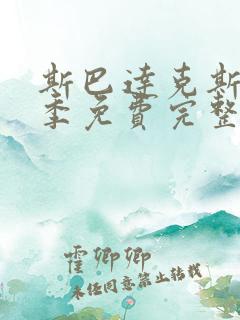 斯巴达克斯
季免費完整
霍卿卿
未经同意禁止转载